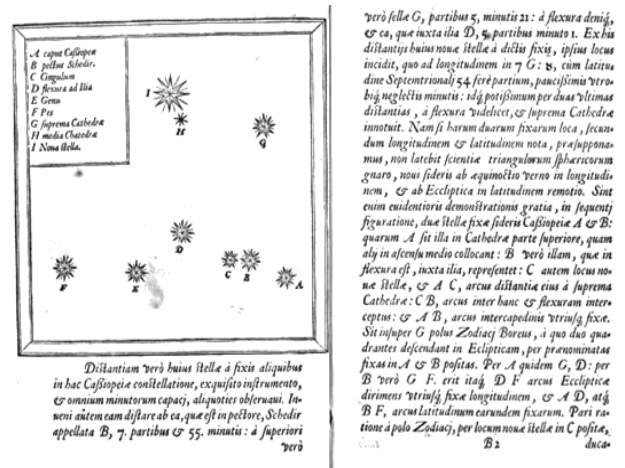 A caput Cassiopeæ
B pectus Schedir.
C Cingulum
D flexura ad Ilia
E Genu
F Pes
G suprema Cathedræ
H media Chatedræ
I Noua stella.
I
H
G
D
C
B
A
E
F
Distantiam verò huius stellæ à fixis aliquibus
in hac Cassiopeiæ constellatione, exquisito instrumento,
& omnium minutorum capacj, aliquoties obseruaui. In-
ueni aūtem eam distare ab ea, quæ est in pectore, Schedir
appellata B, 7. partibus & 55. minutis : à superiori
verò
verò stellæ G, partibus 5, minutis 21 : à flexura deniq́,
& ea, quæ iuxta ilia D, 5, partibus minuto 1. Ex his
distantijs huius nouæ stellæ à dictis fixis, ipsius locus
incidit, quo ad longitudinem in 7 G : ♉, cùm latitu-
dine Septemtrionalj 54 ferè partium, paucissimis vtro-
biq́ neglectis minutis : idq́ potissimum per duas vltimas
distantias, à flexura videlicet, & suprema Cathedræ
innotuit. Nam si harum duarum fixarum loca, secun-
dum longitudinem & latitudinem nota, præsuppona-
mus, non latebit scientiæ triangulorum sphæricorum
gnaro, noui sideris ab æquinoctio verno in longitudi-
nem, & ab Eccliptica in latitudinem remotio. Sint
enim euidentioris demonstrationis gratia, in sequentj
figuratione, duæ stellæ fixæ sideris Cassiopeiæ A & B:
quarum A sit illa in Cathedræ parte superiore, quam
alij in ascensu medio collocant : B verò illam, quæ in
flexura est, iuxta ilia, repræsentet : C autem locus no-
uæ stellæ, & A C, arcus distantiæ eius à suprema
Cathedræ : C B, arcus inter hanc & flexuram inter-
ceptus : & A B, arcus intercapedinis vtriusq́ fixæ.
Sit insuper G polus Zodiacj Boreus, à quo duo qua-
drantes descendant in Eclipticam, per prænominatas
fixas in A & B positas. Per A quidem G, D : per
B verò G F. erit itaq́ D F arcus Eclipticæ
dirimens vtriusq́ fixæ longitudinem, & A D, atq́
B F, arcus latitudinum earundem fixarum. Pari ra-
tione à polo Zodiacj, per locum nouæ stellæ in C positæ,
B 2
duca-